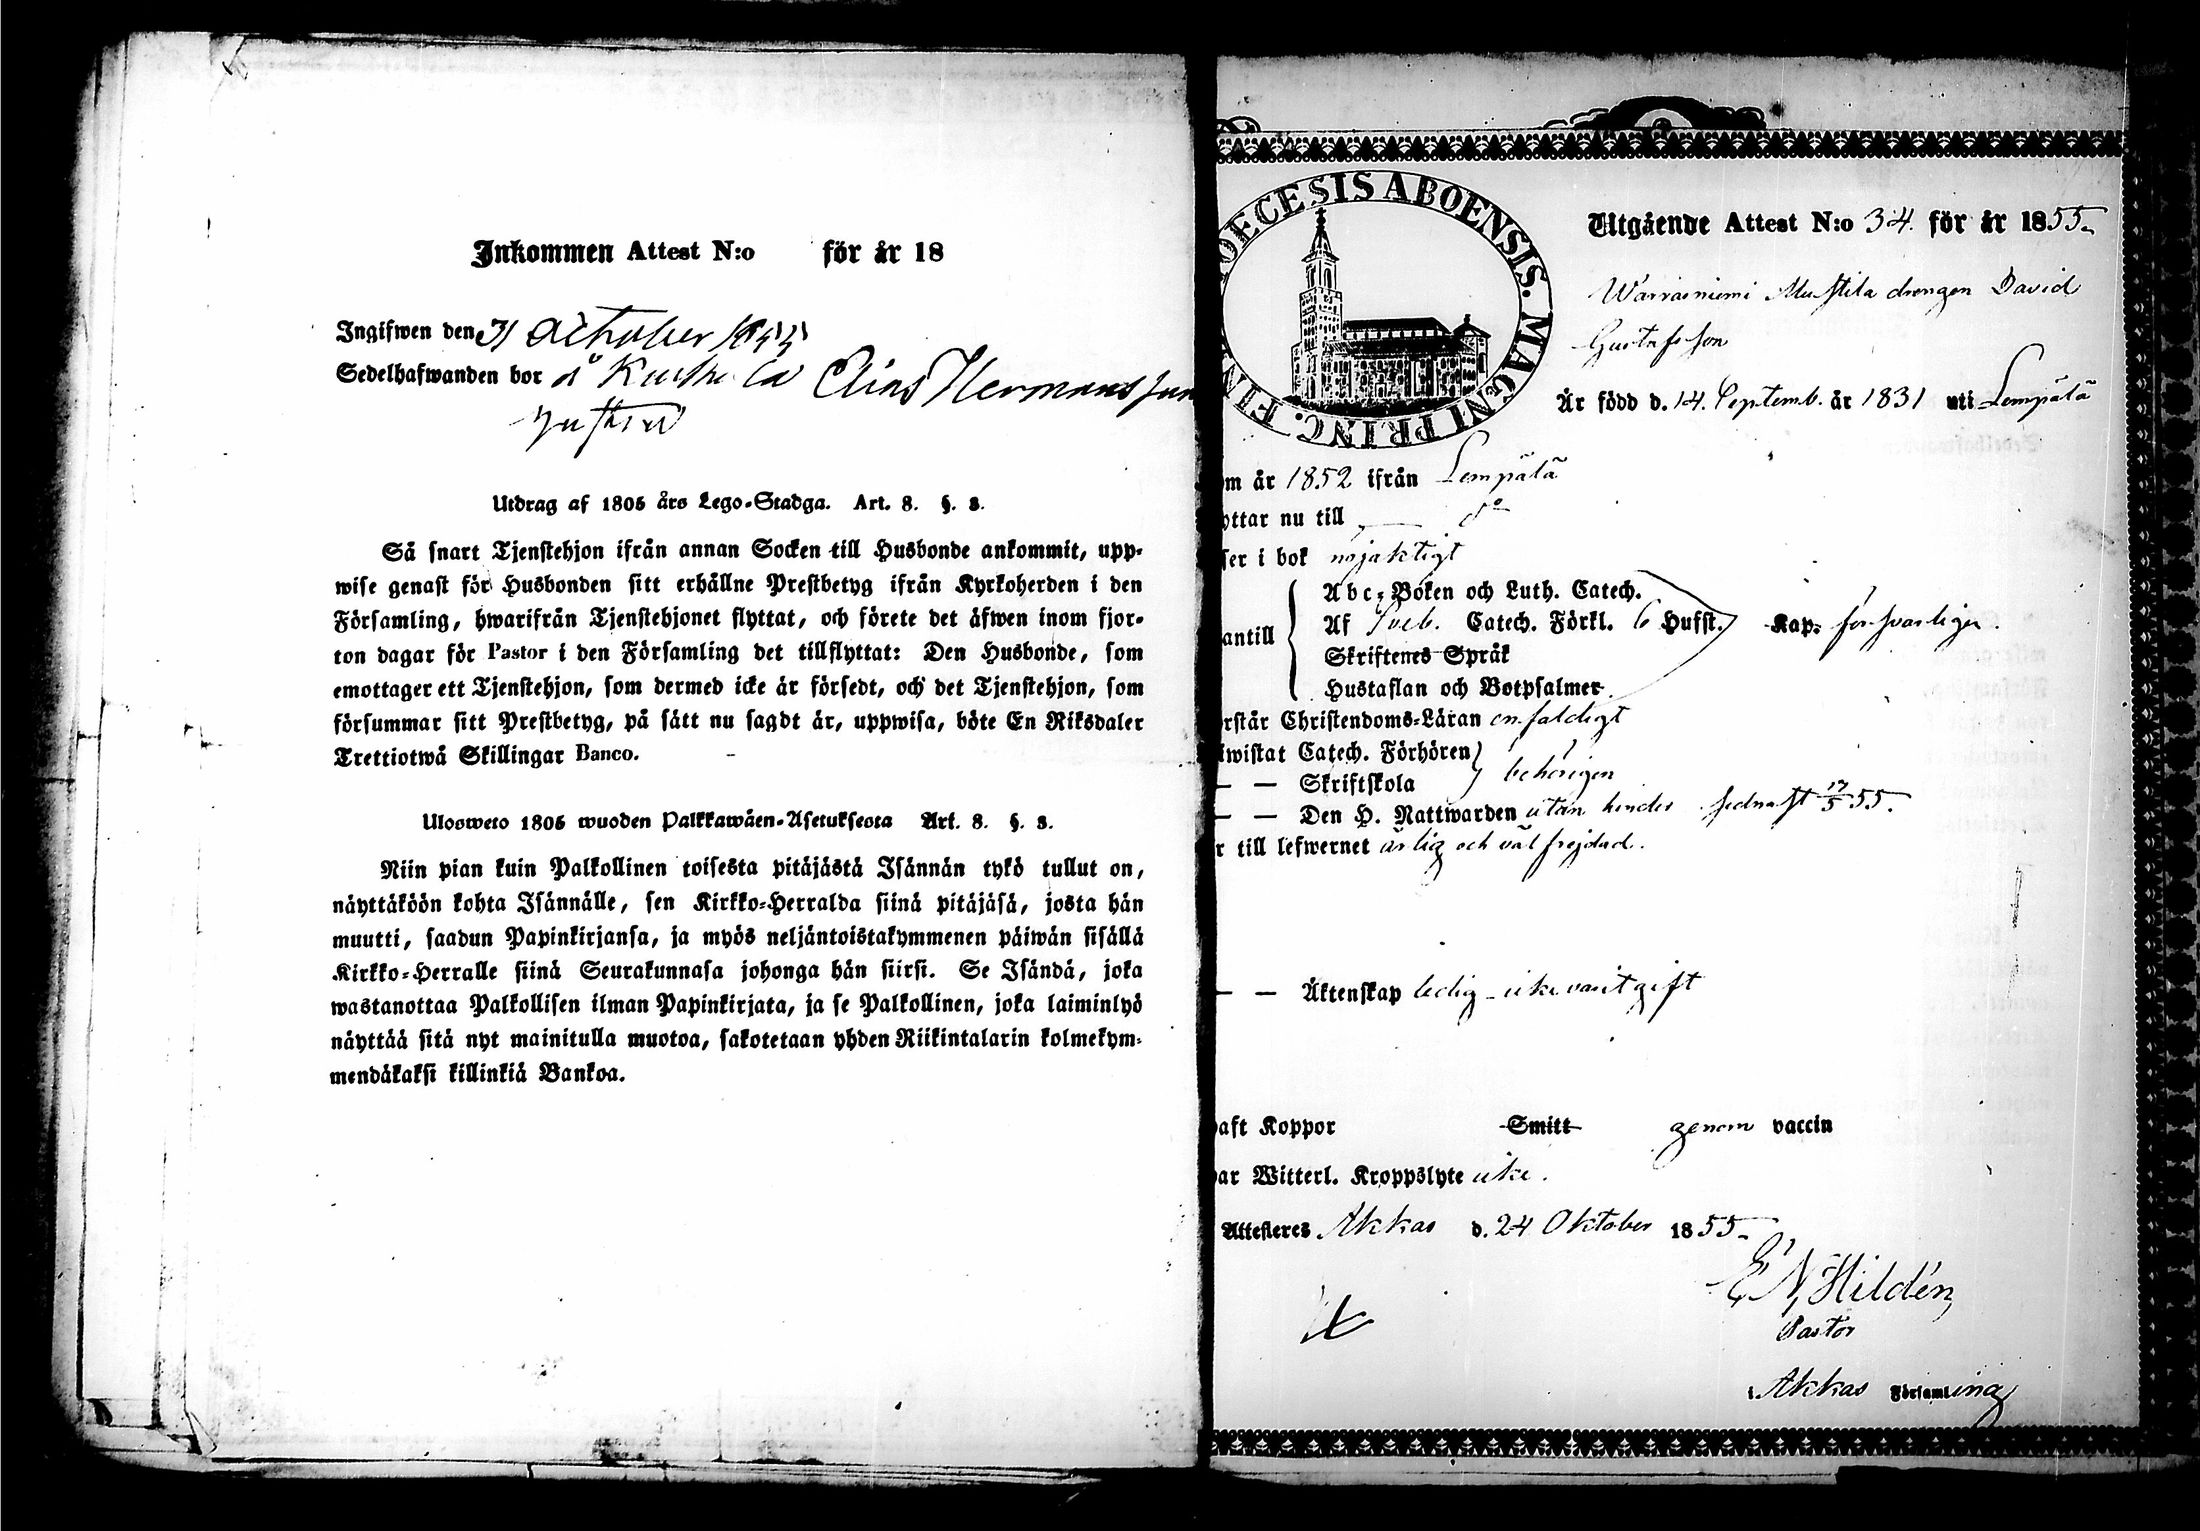 Inkommen Attest N:o för år 18
Ingifwen den 31 October 1855
Sedelhafwanden bor å Elias Hermansson
Utdrag af 1805 års Lego-Stadga. Art. 8. §. 3.
Så snart Tjenstehjon ifrån annan Socken till Husbonde ankommit, upp-
wise genast för Husbonden sitt erhållne Prestbetyg ifrån Kyrkoherden i den
Församling, hwarifrån Tjenstehjonet flyttat, och förete det äfwen inom fjor-
ton dagar för Pastor i den Församling det tillflyttat: Den Husbonde, som
emottager ett Tjenstehjon, som dermed icke är försedt, och det Tjenstehjon, som
försummar sitt Prestbetyg, på sätt nu sagdt är, uppwisa, böte En Riksdaler
Trettiotwå Skillingar Banco.
Ulosweto 1805 wuoden Palkkawäen-Asetuksesta Art. 8. §. 3.
Niin pian kuin Palkollinen toisesta pitäjästä Isännän tykö tullut on,
näyttäköön kohta Isännälle, sen Kirkko-Herralda siinä pitäjäsä, josta hän
muutti, saadun Papinkirjansa, ja myös neljäntoistakymmenen päiwän sisällä
Kirkko-Herralle siinä Seurakunnasa johonga hän siirsi. Se Isändä, joka
wastanottaa Palkollisen ilman Papinkirjata, ja se Palkollinen, joka laiminlyö
näyttää sitä nyt mainitulla muotoa, sakotetaan yhden Riikintalarin kolmekym-
mendäkaksi killinkiä Bankoa.
DECESIS ABOENSIS. MAGNI PRINC. FIN
Utgående Attest N:o 34 för år 1855.
Warraisniemi Mustila drengen David
Gustafsson
Är född d. 14. Septemb. år 1831 uti Lempälä
om år 1852 ifrån Lempälä
yttar nu till — do
ser i bok nöjaktigt
antill
Abc-Boken och Luth. Catech.
Af Sveb. Catech. Förkl. 6 Hufst. Kap. försvarligen.
Skriftenes Språk
Hustaflan och Botpsalmer
rstår Christendoms-Läran enfaldigt
iwistat Catech. Förhören
— — Skriftskola behörigen
— — Den H. Nattwarden utan hinder sednast 17/5 55.
r till lefwernet ärlig och väl frejdad.
— — Äktenskap ledig - icke varit gift
aft Koppor Smitt genom vaccin
ar Witterl. Kroppslyte icke.
Attesteres Akkas d. 24 Oktober 1855.
E N Hildén,
Pastor
i Akkas Församling